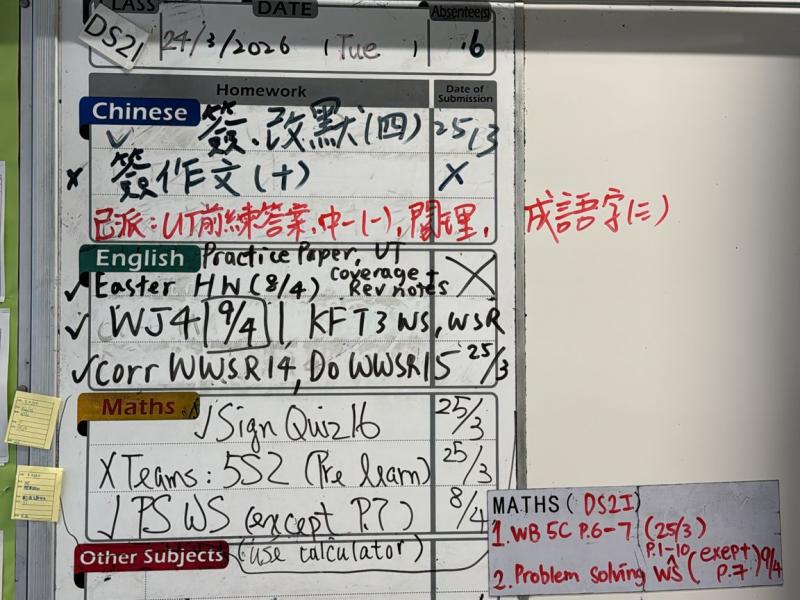 CLASS DATE Absentee(s)
DS2I 24/3/2026 (Tue) 6
Homework Date of Submission
Chinese 簽.改默(四) 25/3
x 簽作文(十) X
已派:UT前練答案,中一(一), 閱理, 成語字(三)
English Practice Paper, UT coverage + Rev notes X
✓ Easter HW (8/4)
✓ WJ4 9/4 | KFT3 WS, WSR
✓ Corr WWSR14, Do WWSR15 25/3
Maths
✓ Sign Quiz16 25/3
X Teams: 5S2 (Pre learn) 25/3
✓ PS WS (except P.7) 8/4
Other Subjects (use calculator)
MATHS (DS2I)
1. WB 5C P.6-7 (25/3)
P.1-10
2. Problem solving WS (exept P.7) 9/4